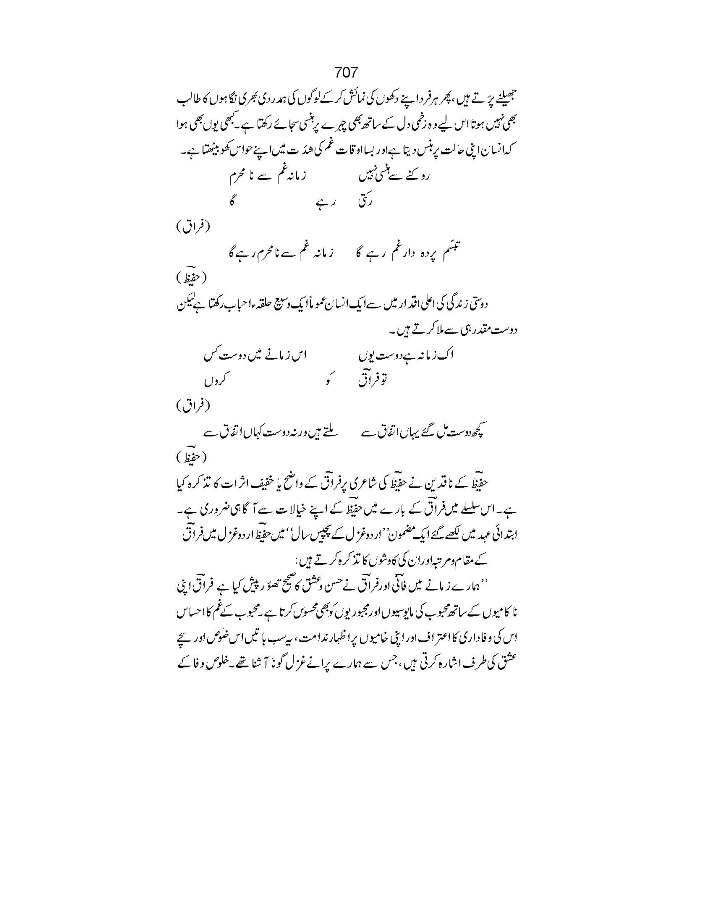 707
جھیلنے پڑتے ہیں، پھر ہر فرد اپنے دکھوں کی نمائش کر کے لوگوں کی ہمدردی بھری نگاہوں کا طالب
بھی نہیں ہوتا اس لیے وہ زخمی دل کے ساتھ بھی چہرے پر ہنسی سجائے رکھتا ہے۔ کبھی یوں بھی ہوا
کہ انسان اپنی حالت پر ہنس دیتا ہے اور بسا اوقات غم کی شدّت میں اپنے حواس کھو بیٹھتا ہے۔
روکنے سے ہنسی نہیں زمانہ غم سے نا محرم
رکتی رہے گا
(فراق)
تبسّم پردہ دارِ غم رہے گا زمانہ غم سے نامحرم رہے گا
(حفیظ)
دوستی زندگی کی اعلی اقدار میں سے ایک انسان عموماً ایک وسیع حلقہء احباب رکھتا ہے لیکن
دوست مقدر ہی سے ملا کرتے ہیں۔
اک زمانہ ہے دوست یوں اس زمانے میں دوست کس
تو فراقؔ کو کروں
(فراق)
کچھ دوست مل گئے یہاں اتفاق سے ملتے ہیں ورنہ دوست کہاں اتفاق سے
(حفیظ)
حفیظؔ کے ناقدین نے حفیظؔ کی شاعری پر فراقؔ کے واضح یا خفیف اثرات کا تذکرہ کیا
ہے۔ اس سلسلے میں فراقؔ کے بارے میں حفیظؔ کے اپنے خیالات سے آگاہی ضروری ہے۔
ابتدائی عہد میں لکھے گئے ایک مضمون ''اردو غزل کے پچیس سال'' میں حفیظؔ اردو غزل میں فراقؔ
کے مقام و مرتبہ اور ان کی کاوشوں کا تذکرہ کرتے ہیں:
''ہمارے زمانے میں فانیؔ اور فراقؔ نے حسن و عشق کا صحیح تصوّر پیش کیا ہے فراقؔ اپنی
ناکامیوں کے ساتھ محبوب کی مایوسیوں اور مجبوریوں کو بھی محسوس کرتا ہے۔ محبوب کے غم کا احساس
اس کی وفاداری کا اعتراف اور اپنی خامیوں پر اظہار ندامت، یہ سب باتیں اس خلوص اور سچے
عشق کی طرف اشارہ کرتی ہیں، جس سے ہمارے پرانے غزل گو نا آشنا تھے۔ خلوص وفا کے